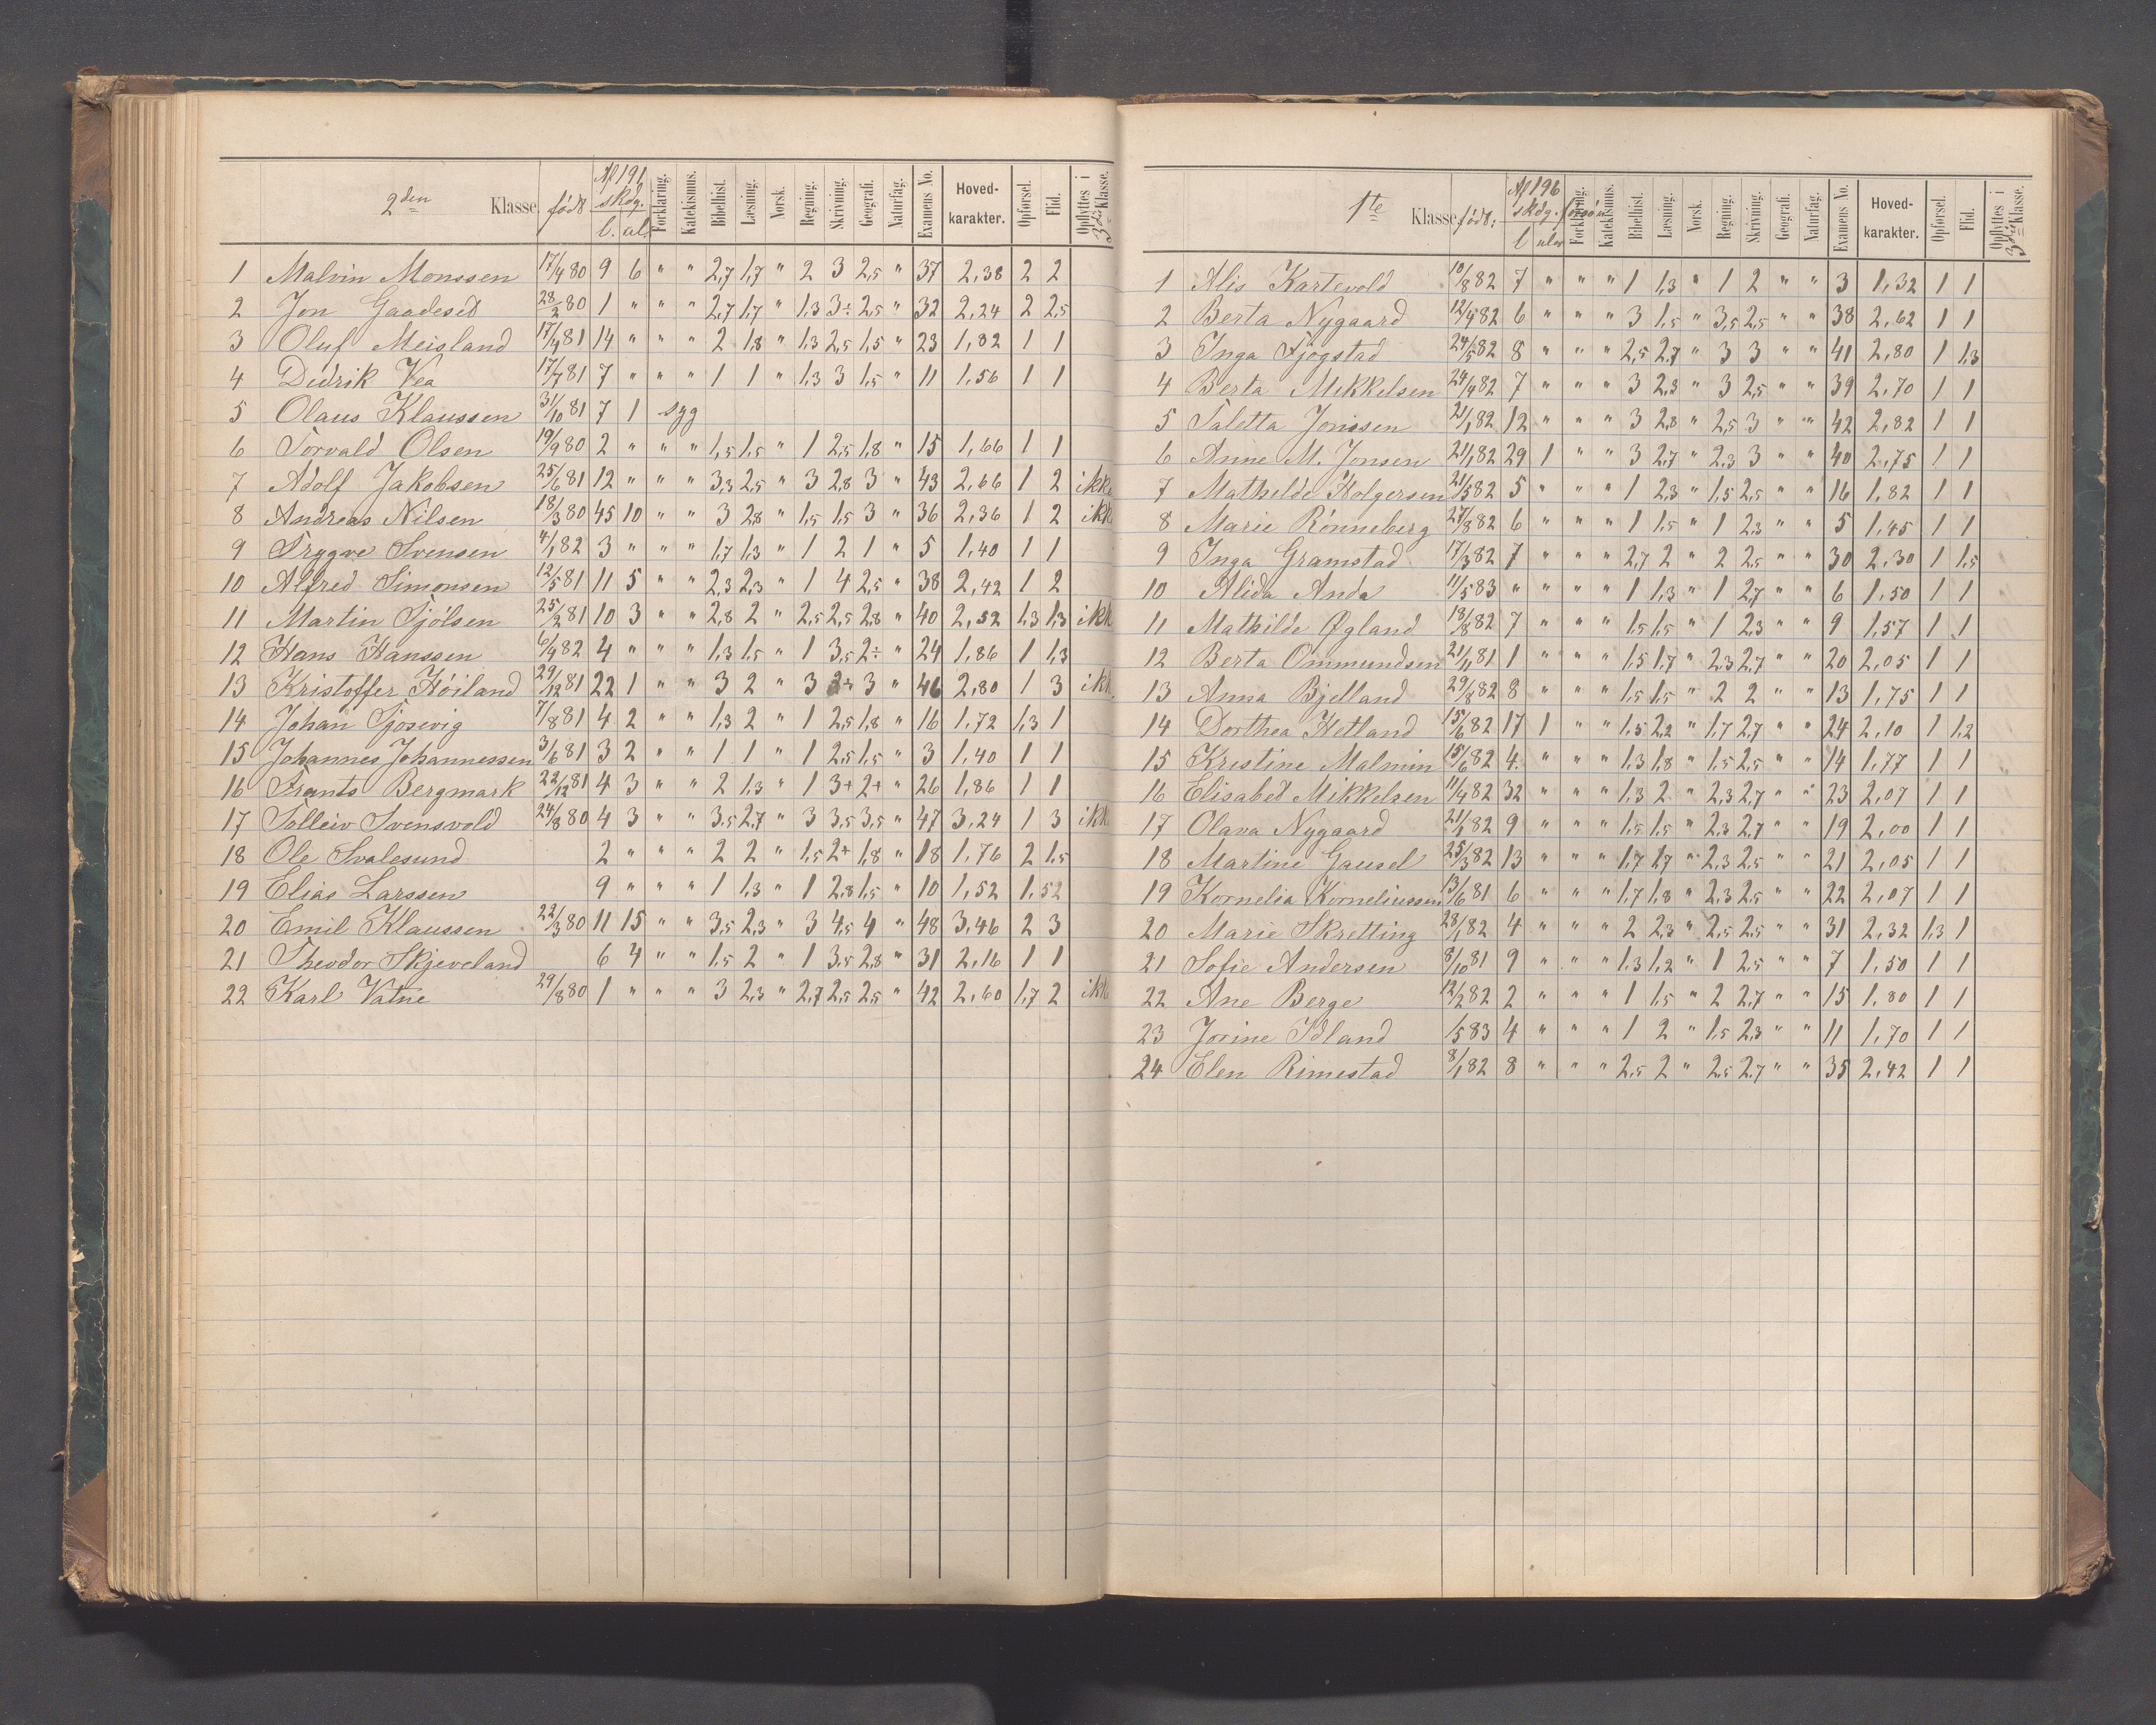 2den Klasse. født Af 191 skdg. l. ul. Forklaring. Katekismus. Bibelhist. Læsning. Norsk. Regning. Skrivning. Geografi. Naturfag. Examens No. Hoved-karakter. Opførsel. Flid. Opflyttes i 3die Klasse.
1 Malvin Monssen 17/4 80 9 6 " " 2,7 1,7 " 2 3 2,5 " 37 2,38 2 2
2 Jon Gaadesed 28/2 80 1 " " " 2,7 1,7 " 1,3 3÷ 2,5 " 32 2,24 2 2,5
3 Oluf Meisland 17/4 81 14 " " " 2 1,8 " 1,3 2,5 1,5 " 23 1,82 1 1
4 Didrik Vea 17/7 81 7 " " " 1 1 " 1,3 3 1,5 " 11 1,56 1 1
5 Olaus Klaussen 31/10 81 7 1 syg
6 Torvald Olsen 19/9 80 2 " " " 1,5 1,5 " 1 2,5 1,8 " 15 1,66 1 1
7 Adolf Jakobsen 25/6 81 12 " " " 3,3 2,5 " 3 2,8 3 " 43 2,66 1 2 ikke
8 Andreas Nilsen 18/3 80 45 10 " " 3 2,8 " 1,5 1,5 3 " 36 2,36 1 2 ikk
9 Tryggve Svensen 4/1 82 3 " " " 1,7 1,3 " 1 2 1 " 5 1,40 1 1
10 Alfred Simonsen 12/5 81 11 5 " " 2,3 2,3 " 1 4 2,5 " 38 2,42 1 2
11 Martin Tjølsen 25/2 81 10 3 " " 2,8 2 " 2,5 2,5 2,8 " 40 2,52 1,3 1,3 ikk
12 Hans Hanssen 6/4 82 4 " " " 1,3 1,5 " 1 3,5 2÷ " 24 1,86 1 1,3
13 Kristoffer Høiland 29/12 81 22 1 " " 3 2 " 3 2+ 3 " 46 2,80 1 3 ikk
14 Johan Tjosevig 7/8 81 4 2 " " 1,3 2 " 1 2,5 1,8 " 16 1,72 1,3 1
15 Johannes Johannessen 3/6 81 3 2 " " 1 1 " 1 2,5 1,5 " 3 1,40 1 1
16 Frants Bergmark 22/12 81 4 3 " " 2 1,3 " 1 3+ 2+ " 26 1,86 1 1
17 Tolleiv Svensvold 24/8 80 4 3 " " 3,5 2,7 " 3 3,5 3,5 " 47 3,24 1 3 ikk
18 Ole Svalesund 2 " " " 2 2 " 1,5 2+ 1,8 " 18 1,76 2 1,5
19 Elias Larssen 9 " " " 1 1,3 " 1 2,8 1,5 " 10 1,52 1,5 2
20 Emil Klaussen 22/3 80 11 15 " " 3,5 2,3 " 3 4,5 4 " 48 3,46 2 3
21 Theodor Skjeveland 6 4 " " 1,5 2 " 1 3,5 2,8 " 31 2,16 1 1
22 Karl Vatne 29/8 80 1 " " " 3 2,3 " 2,7 2,5 2,5 " 42 2,60 1,7 2 ikk
1te Klasse. født; Af 196 skdg. l ulov Forklaring. Katekismus. Bibelhist. Læsning. Norsk. Regning. Skrivning. Geografi. Naturfag. Examens No. Hoved-karakter. Opførsel. Flid. Opflyttes i 3die Klasse.
1 Alis Kartevold 10/8 82 7 " " " 1 1,3 " 1 2 " " 3 1,32 1 1
2 Berta Nygaard 12/4 82 6 " " " 3 1,5 " 3,5 2,5 " " 38 2,62 1 1
3 Inga Fjøgstad 24/5 82 8 " " " 2,5 2,7 " 3 3 " " 41 2,80 1 1,3
4 Berta Mikkelsen 24/4 82 7 " " " 3 2,3 " 3 2,5 " " 39 2,70 1 1
5 Taletta Jonssen 21/1 82 12 " " " 3 2,8 " 2,5 3 " " 42 2,82 1 1
6 Anne M. Jonsen 21/1 82 29 1 " " 3 2,7 " 2,3 3 " " 40 2,75 1 1
7 Mathilde Holgersen 21/5 82 5 " " " 1 2,3 " 1,5 2,5 " " 16 1,82 1 1
8 Marie Rønneberg 27/8 82 6 " " " 1 1,5 " 1 2,3 " " 5 1,45 1 1
9 Inga Gramstad 17/3 82 7 " " " 2,7 2 " 2 2,5 " " 30 2,30 1 1,5
10 Alida Anda 11/5 83 " " " " 1 1,3 " 1 2,7 " " 6 1,50 1 1
11 Mathilde Øgland 18/8 82 7 " " " 1,5 1,5 " 1 2,3 " " 9 1,57 1 1
12 Berta Ommundsen 21/11 81 1 " " " 1,5 1,7 " 2,3 2,7 " " 20 2,05 1 1
13 Anna Bjelland 29/8 82 8 " " " 1,5 1,5 " 2 2 " " 13 1,75 1 1
14 Dorthea Hetland 15/6 82 17 1 " " 1,5 2,2 " 1,7 2,7 " " 24 2,10 1 1,2
15 Kristine Malmin 15/6 82 4 " " " 1,3 1,8 " 1,5 2,5 " " 14 1,77 1 1
16 Elisabed Mikkelsen 11/4 82 32 " " " 1,3 2 " 2,3 2,7 " " 23 2,07 1 1
17 Olava Nygaard 21/1 82 9 " " " 1,5 1,5 " 2,3 2,7 " " 19 2,00 1 1
18 Martine Gausel 25/3 82 13 " " " 1,7 1,7 " 2,3 2,5 " " 21 2,05 1 1
19 Kornelia Korneliussen 13/6 81 6 " " " 1,7 1,8 " 2,3 2,5 " " 22 2,07 1 1
20 Marie Skretting 28/1 82 4 " " " 2 2,3 " 2,5 2,5 " " 31 2,32 1,3 1
21 Sofie Andersen 8/10 81 9 " " " 1,3 1,2 " 1 2,5 " " 7 1,50 1 1
22 Ane Berge 12/2 82 2 " " " 1 1,5 " 2 2,7 " " 15 1,80 1 1
23 Jorine Idland 1/5 83 4 " " " 1 2 " 1,5 2,3 " " 11 1,70 1 1
24 Elen Rimestad 8/1 82 8 " " " 2,5 2 " 2,5 2,7 " " 35 2,42 1 1